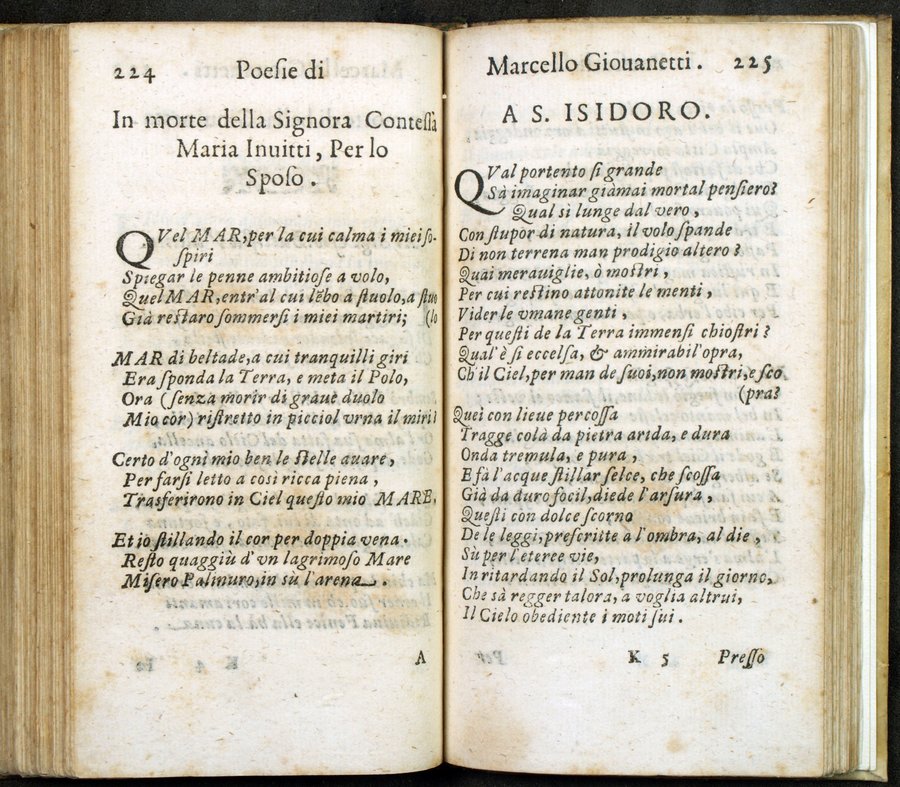 224 Poesie di
In morte della Signora Contessa
Maria Inuitti, Per lo
Sposo.
QVel MAR, per la cui calma i miei so-
spiri
Spiegar le penne ambitiose a volo,
Quel MAR, entr'al cui lēbo à stuolo, a stuo
Già restaro sommersi i miei martiri; (lo
MAR di beltade, a cui tranquilli giri
Era sponda la Terra, e meta il Polo,
Ora (senza morir di graue duolo
Mio cor) ristretto in picciol vrna il miri!
Certo d'ogni mio ben le stelle auare,
Per farsi letto a così ricca piena,
Trasferirono in Ciel questo mio MARE,
Et io stillando il cor per doppia vena.
Resto quaggiù d'vn lagrimoso Mare
Misero Palinuro, in sù l'arena.
A
Marcello Giouanetti. 225
A S. ISIDORO.
QVal portento si grande
Sà imaginar giàmai mortal pensiero?
Qual sì lunge dal vero,
Con stupor di natura, il volo spande
Di non terrena man prodigio altero?
Quai merauiglie, ò mostri,
Per cui restino attonite le menti,
Vider le vmane genti,
Per questi de la Terra immensi chiostri?
Qual'è sì eccelsa, & ammirabil'opra,
Ch'il Ciel, per man de suoi, non mostri, e sco
(pra?
Quei con lieue percossa
Tragge colà da pietra arida, e dura
Onda tremula, e pura,
E fà l'acque stillar selce, che scossa
Già da duro focil, diede l'arsura,
Questi con dolce scorno
De le leggi, prescritte a l'ombra, al die,
Sù per l'eteree vie,
In ritardando il Sol, prolunga il giorno,
Che sà regger talora, a voglia altrui,
Il Cielo obediente i moti sui.
K 5 Presso